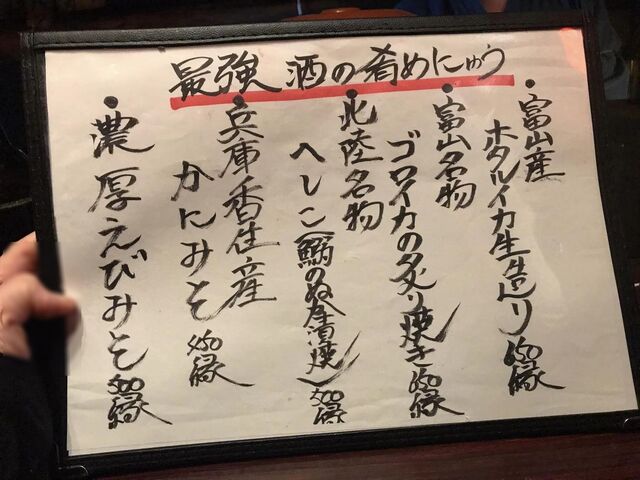 最強 酒の肴めにゅう
・富山産
ホタルイカ生造り 650縁
・富山名物
ゴロイカの炙り焼き 650縁
・北陸名物
へしこ(鯖のぬか漬焼) 500縁
・兵庫香住産
かにみそ 450縁
・濃厚えびみそ 500縁